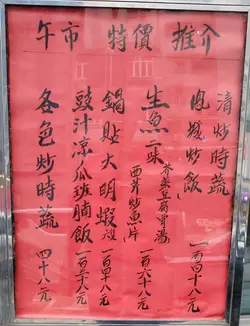 午市 特價 推介
清炒時蔬
鳳城炒飯
一百四十八元
生魚二味
芥菜豆腐魚湯
西芹炒魚片
一百六十八元
鍋貼大明蝦
一百四十八元
豉汁涼瓜班腩飯
一百三十八元
各色炒時蔬
四十八元